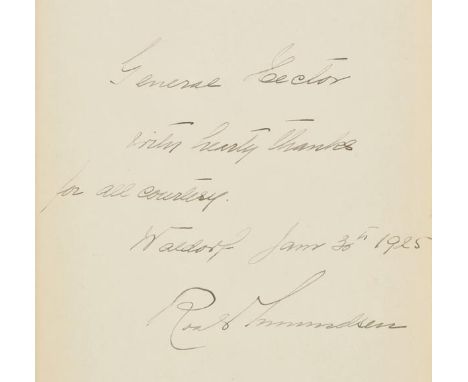 General Eector
with hearty thanks
for all courtesy.
Waldorf Jan 30th 1925
Roald Amundsen